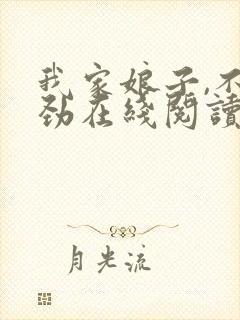 我家娘子,不
劲在线阅读
月光流